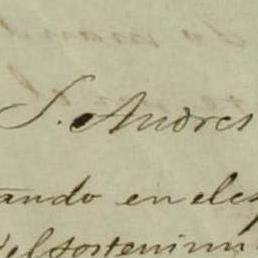 S. Andres
ando en el es
del sostenim